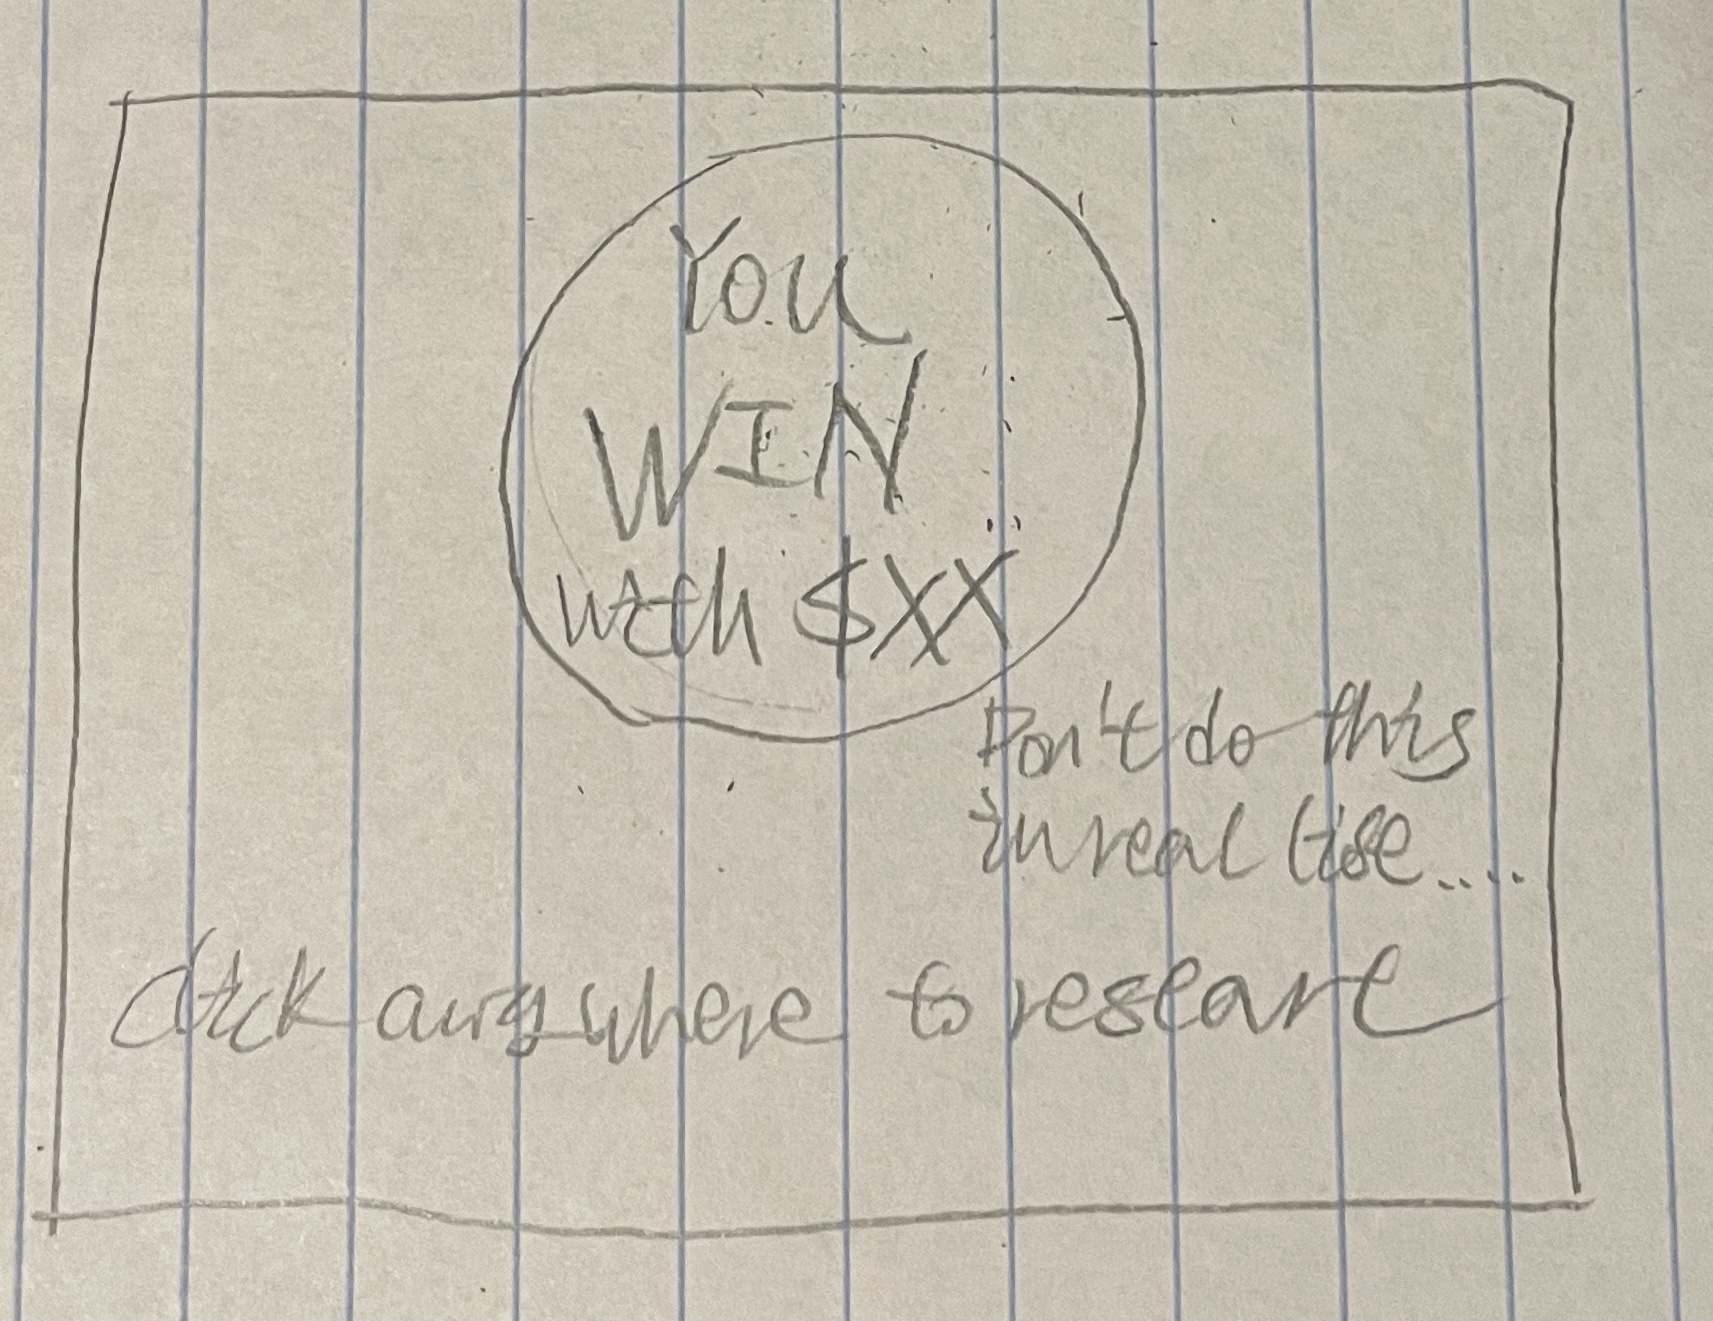 You
WIN
with $XX
Don't do this
in real life....
Click anywhere to restart